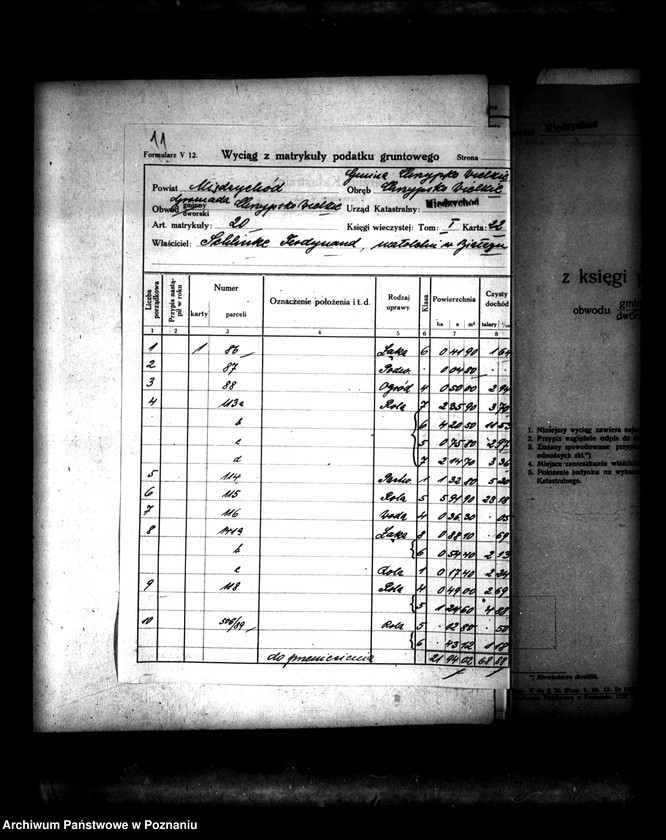 11
Formularz V 12. Wyciąg z matrykuły podatku gruntowego Strona
Gmina Chrzypsko Wielkie
Powiat Międzychód Obręb Chrzypsko Wielkie
Gromada Chrzypsko Wielkie
Obwód gminny dworski Urząd Katastralny: Międzychod
Art. matrykuły: 20 Księgi wieczystej: Tom: I Karta: 22
Właściciel: Schlinke Ferdynand,
Liczba porządkowa Przypis nastąpił w roku Numer karty parceli Oznaczenie położenia i t. d. Rodzaj uprawy Klasa Powierzchnia ha a m² Czysty dochód talary
1 2 3 4 5 6 7 8
1 1 86 Łąka 6 0 41 90 1 64
2 87 Podw. 0 04 80
3 88 Ogród 4 0 50 00 2 94
4 113a Rola 7 2 35 90 3 70
b 6 4 20 50 11 53
c 5 0 75 80 2 97
d 7 2 14 70 3 36
5 114 1 1 32 80 5 20
6 115 Rola 5 5 91 90 23 18
7 116 Woda 4 0 36 30 05
8 Łąka 8 0 88 10 69
b 6 0 54 40 2 13
c Rola 1 0 17 40 2 34
9 118 Rola 4 0 49 00 2 69
5 1 24 60 4 88
10 506/89 Rola 5 02 80 50
6 43 12 1 18
do przeniesienia 21 94 02 68 88
z księgi
obwodu
1. Niniejszy wyciąg zawiera
2. Przypis względnie odpis do
3. Zmiany spowodowane
odnośnych akt.*)
4. Miejsce zamieszkania właściciela
5. Położenie budynku na
Katastralnego.
*) Niewłaściwe skreślić.
Archiwum Państwowe w Poznaniu